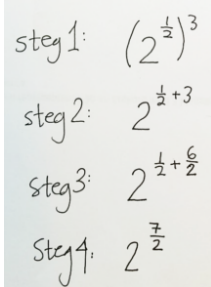 steg1: (2^{\frac{1}{2}})^3
steg2: 2^{\frac{1}{2}+3}
steg3: 2^{\frac{1}{2}+\frac{6}{2}}
Steg4. 2^{\frac{7}{2}}